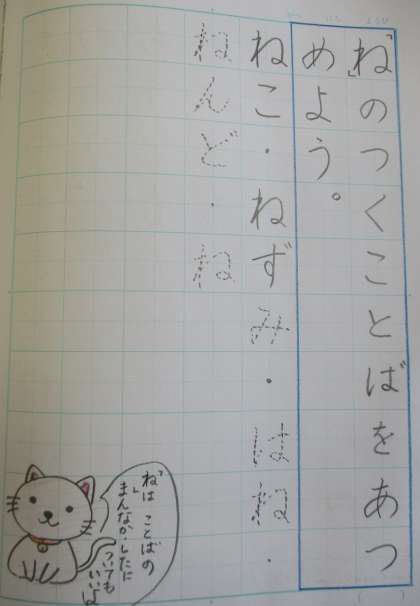 「ね」のつくことばをあつ
めよう。
ねこ・ねずみ・
ねんど・ね
「ね」は ことばの
まんなか・したに
ついても
いいよ